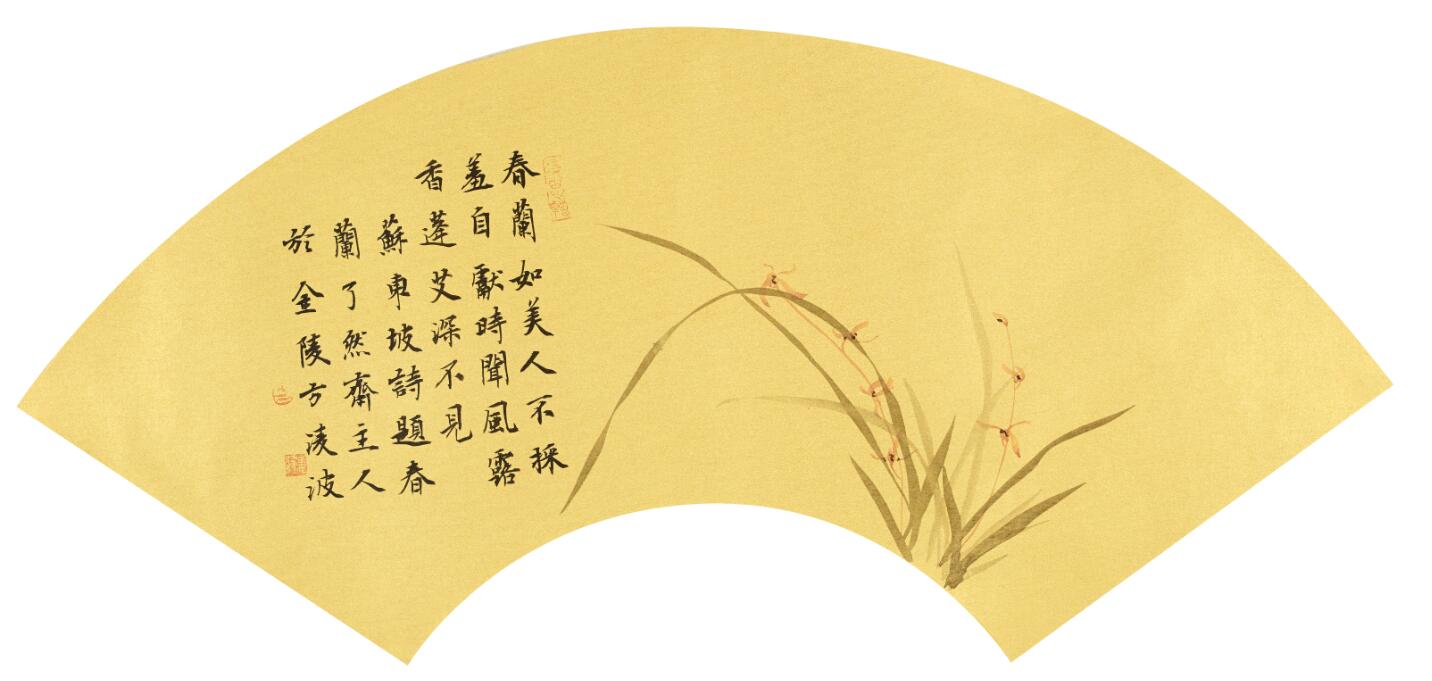 春蘭如美人不採
羞自獻時聞風露
香蓬艾深不見
蘇東坡詩題春
蘭了然齋主人
於金陵方凌波